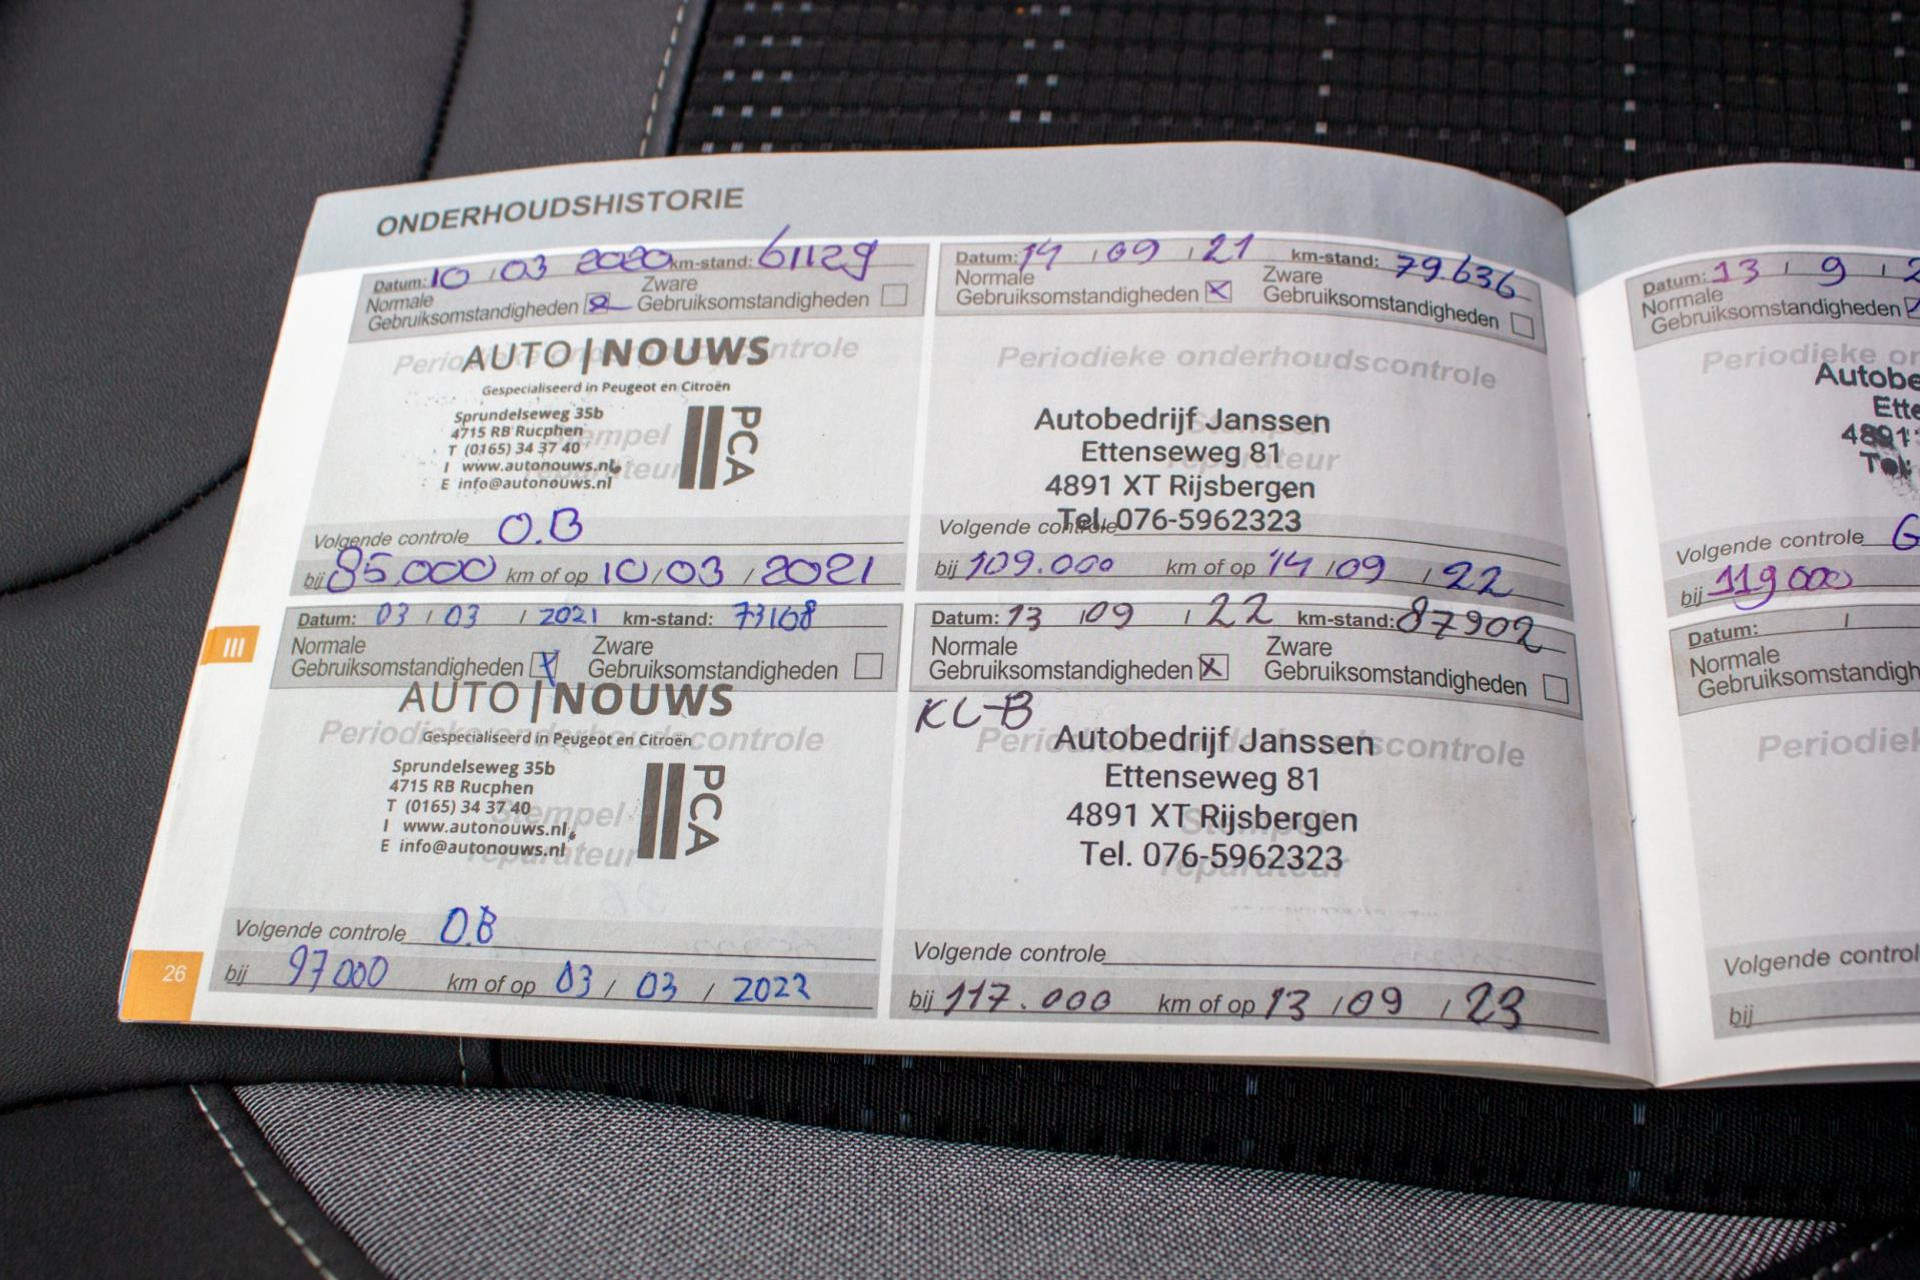 ONDERHOUDSHISTORIE
Datum: 10 / 03 2020 km-stand: 61129
Normale Gebruiksomstandigheden
Zware Gebruiksomstandigheden
Periodieke onderhoudscontrole
AUTO|NOUWS
Gespecialiseerd in Peugeot en Citroën
Sprundelseweg 35b
4715 RB Rucphen
T (0165) 34 37 40
I www.autonouws.nl
E info@autonouws.nl
PCA
Stempel
reparateur
Volgende controle O.B
bij 85.000 km of op 10 / 03 / 2021
Datum: 03 / 03 / 2021 km-stand: 73168
Normale Gebruiksomstandigheden
Zware Gebruiksomstandigheden
AUTO|NOUWS
Periodieke onderhoudscontrole
Gespecialiseerd in Peugeot en Citroën
Sprundelseweg 35b
4715 RB Rucphen
T (0165) 34 37 40
I www.autonouws.nl
E info@autonouws.nl
PCA
Stempel
reparateur
Volgende controle O.B
bij 97000 km of op 03 / 03 / 2022
III
26
Datum: 14 / 09 / 21 km-stand: 79.636
Normale Gebruiksomstandigheden
Zware Gebruiksomstandigheden
Periodieke onderhoudscontrole
Autobedrijf Janssen
Ettenseweg 81
4891 XT Rijsbergen
Tel. 076-5962323
Stempel
reparateur
Volgende controle
bij 109.000 km of op 14 / 09 / 22
Datum: 13 / 09 / 22 km-stand: 87902
Normale Gebruiksomstandigheden
Zware Gebruiksomstandigheden
KL-B
Periodieke onderhoudscontrole
Autobedrijf Janssen
Ettenseweg 81
4891 XT Rijsbergen
Tel. 076-5962323
Stempel
reparateur
Volgende controle
bij 117.000 km of op 13 / 09 / 23
Datum: 13 / 9 / 2
Normale
Gebruiksomstandigheden
Periodieke on
Autobe
Ette
4891
Tel
Volgende controle G
bij 119000
Datum: /
Normale
Gebruiksomstandigh
Periodiek
Volgende control
bij